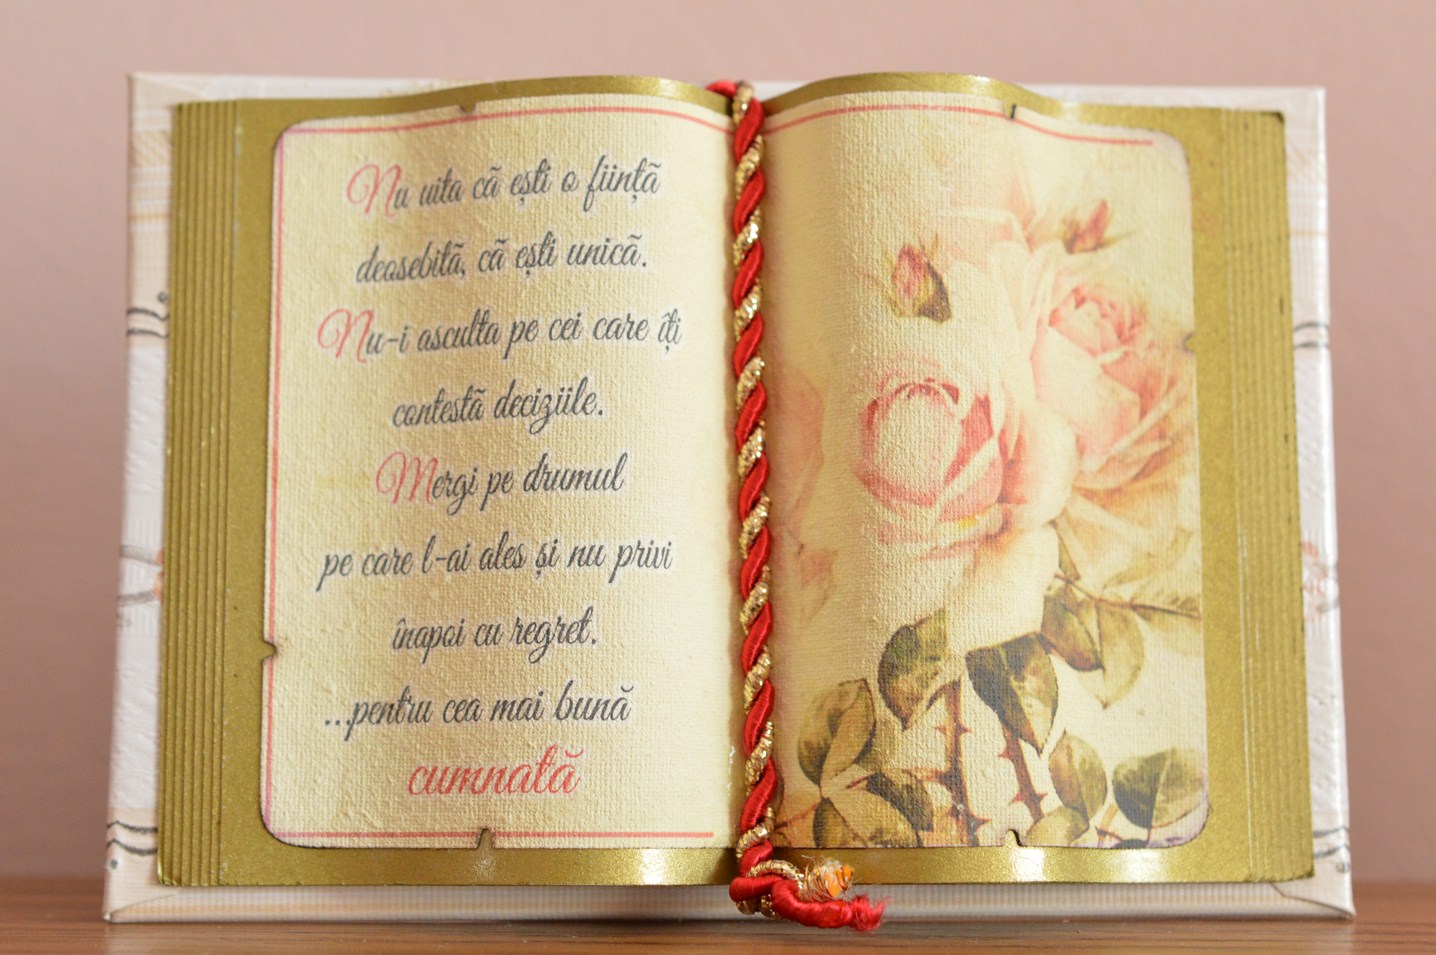 Nu uita cã ești oființã
deosebitã, cã ești unicã.
Nu-i asculta pe cei care îți
contestã deciziile.
Mergi pe drumul
pe care l-ai ales și nu privi
înapoi cu regret.
...pentru cea mai bună
cumnată